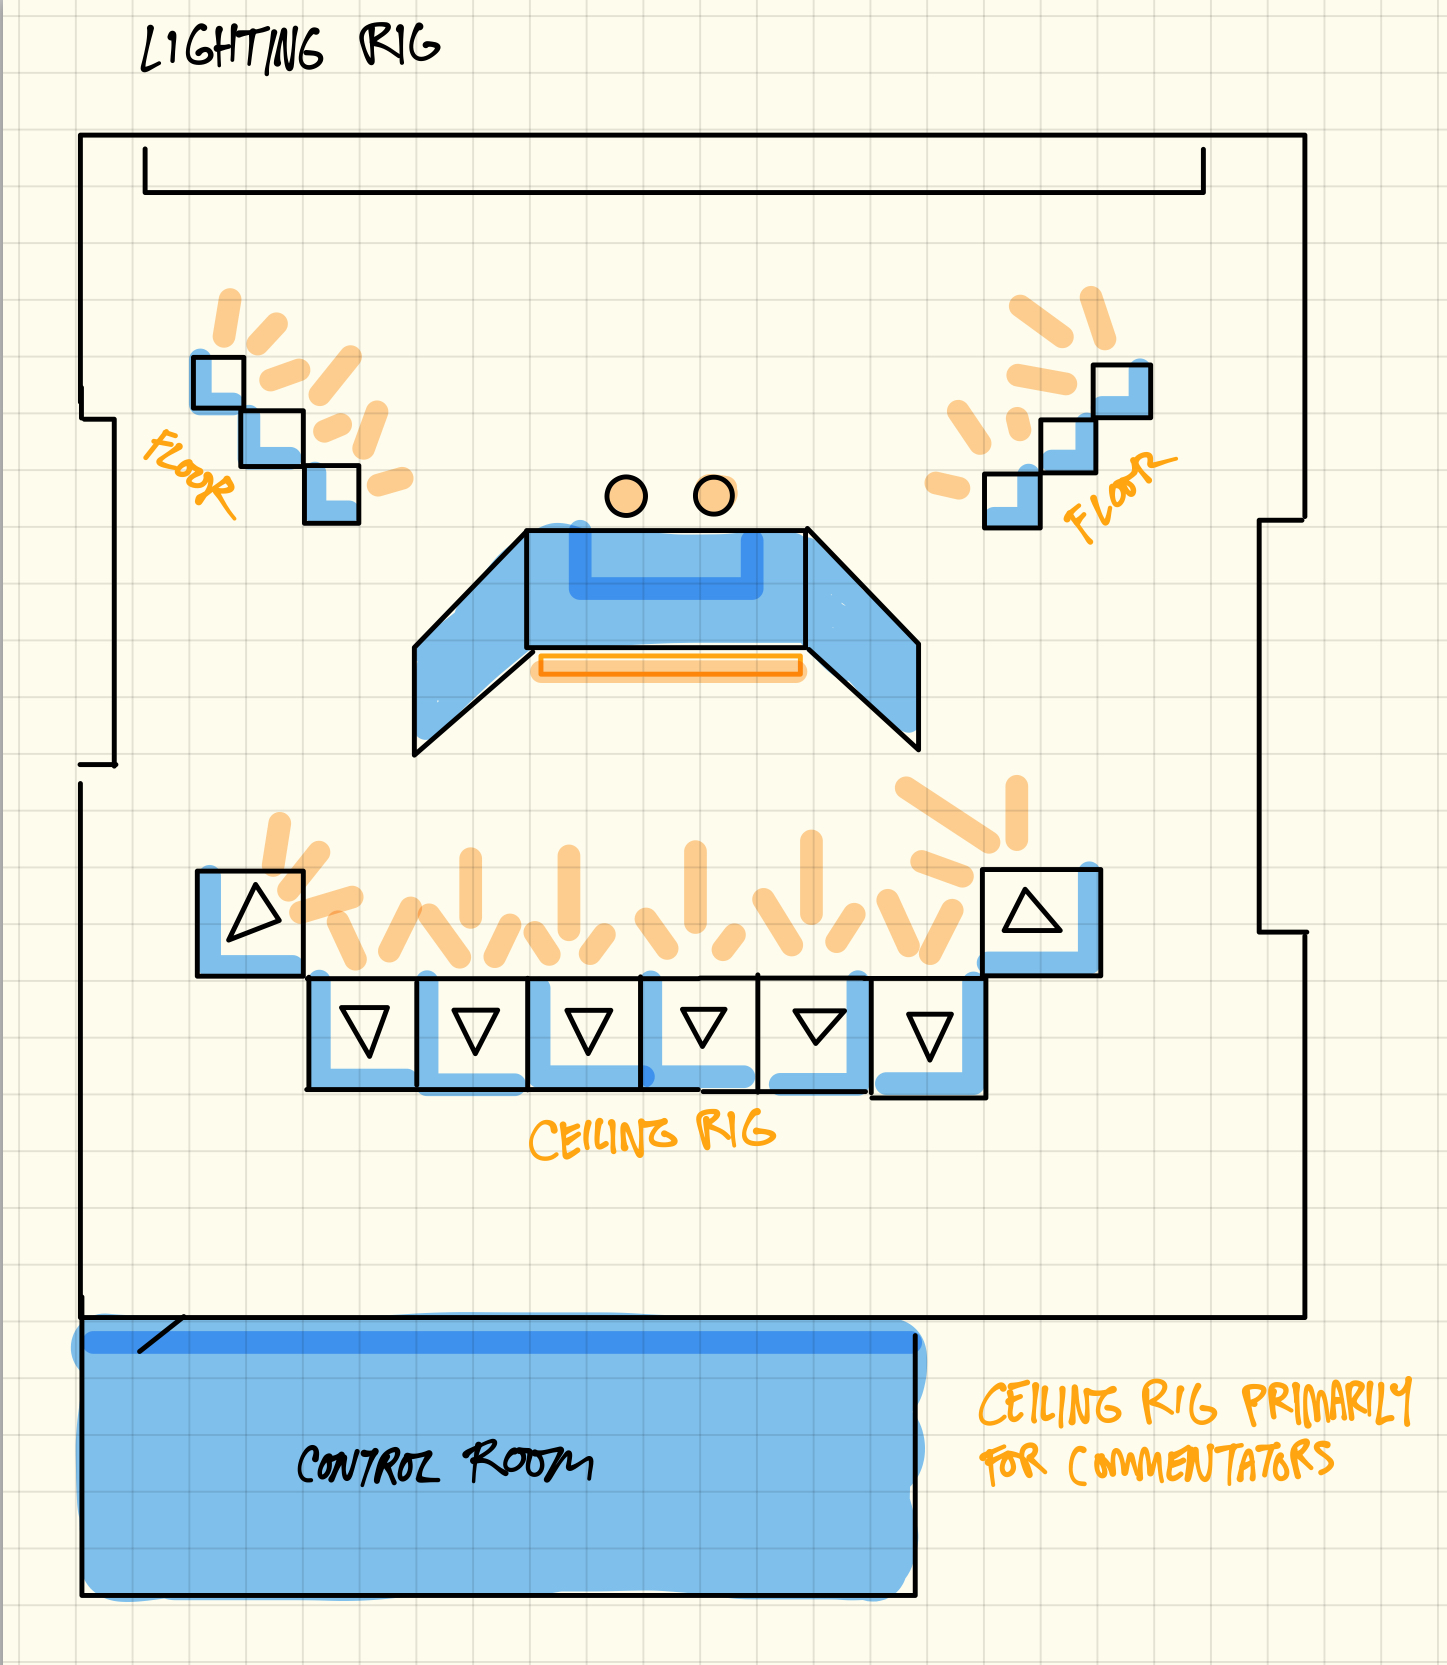 LIGHTING RIG
FLOOR
FLOOR
CEILING RIG
CONTROL ROOM
CEILING RIG PRIMARILY
FOR COMMENTATORS